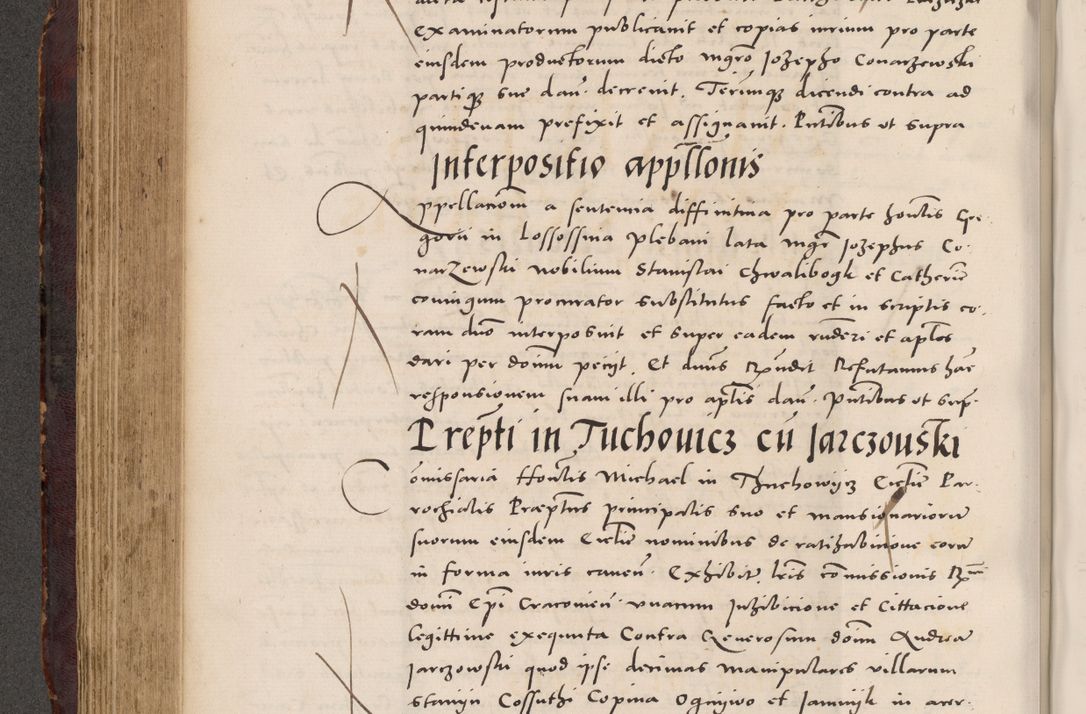 examinatorum publicavit et copias jurium pro parte
eiusdem productorum dicto mgro Jozepho Conarzewski
partiq sue dan. decrevit. Terunq dicendi contra ad
quindenam prefixit et assignavit. Pntibus ut supra
Interpositio appllonis
Appellacionem a sententia diffinitiva pro parte honlis Gre-
gorii in Lossossina plebani lata mgr Jozephus Co-
narzewski nobilium Stanislai Chwalibogk et Catherine
coniugum procurator substitutus facto et in scriptis co-
ram dno interposuit et super eadem rndezi et aplos
dari per domin peciit. Et dnus Rpndit Refutamus hanc
responsionem suam illi pro aplis dan. pntibus ut sup.
Prepti in Tuchovicz cu Jarczouski
Comissaria Honlis Michael in Thuchowycz Ecclie Par-
rochialis Praeptus principalis suo et mansionarioru
suorum eiusdem Ecclie nominibus de ratihabicione eoru
in forma iuris caven. Exhibuit lris comissionis R
domi Epi Cracovien. unacum Inhibicione et Cittacione
legittime exequuta Contra Generosum domi Andrea
Jarczowski quod ipse decimas manipulares villarum
Stanyn Cossuthi Copina Ognywo et Jamnyk in acer-